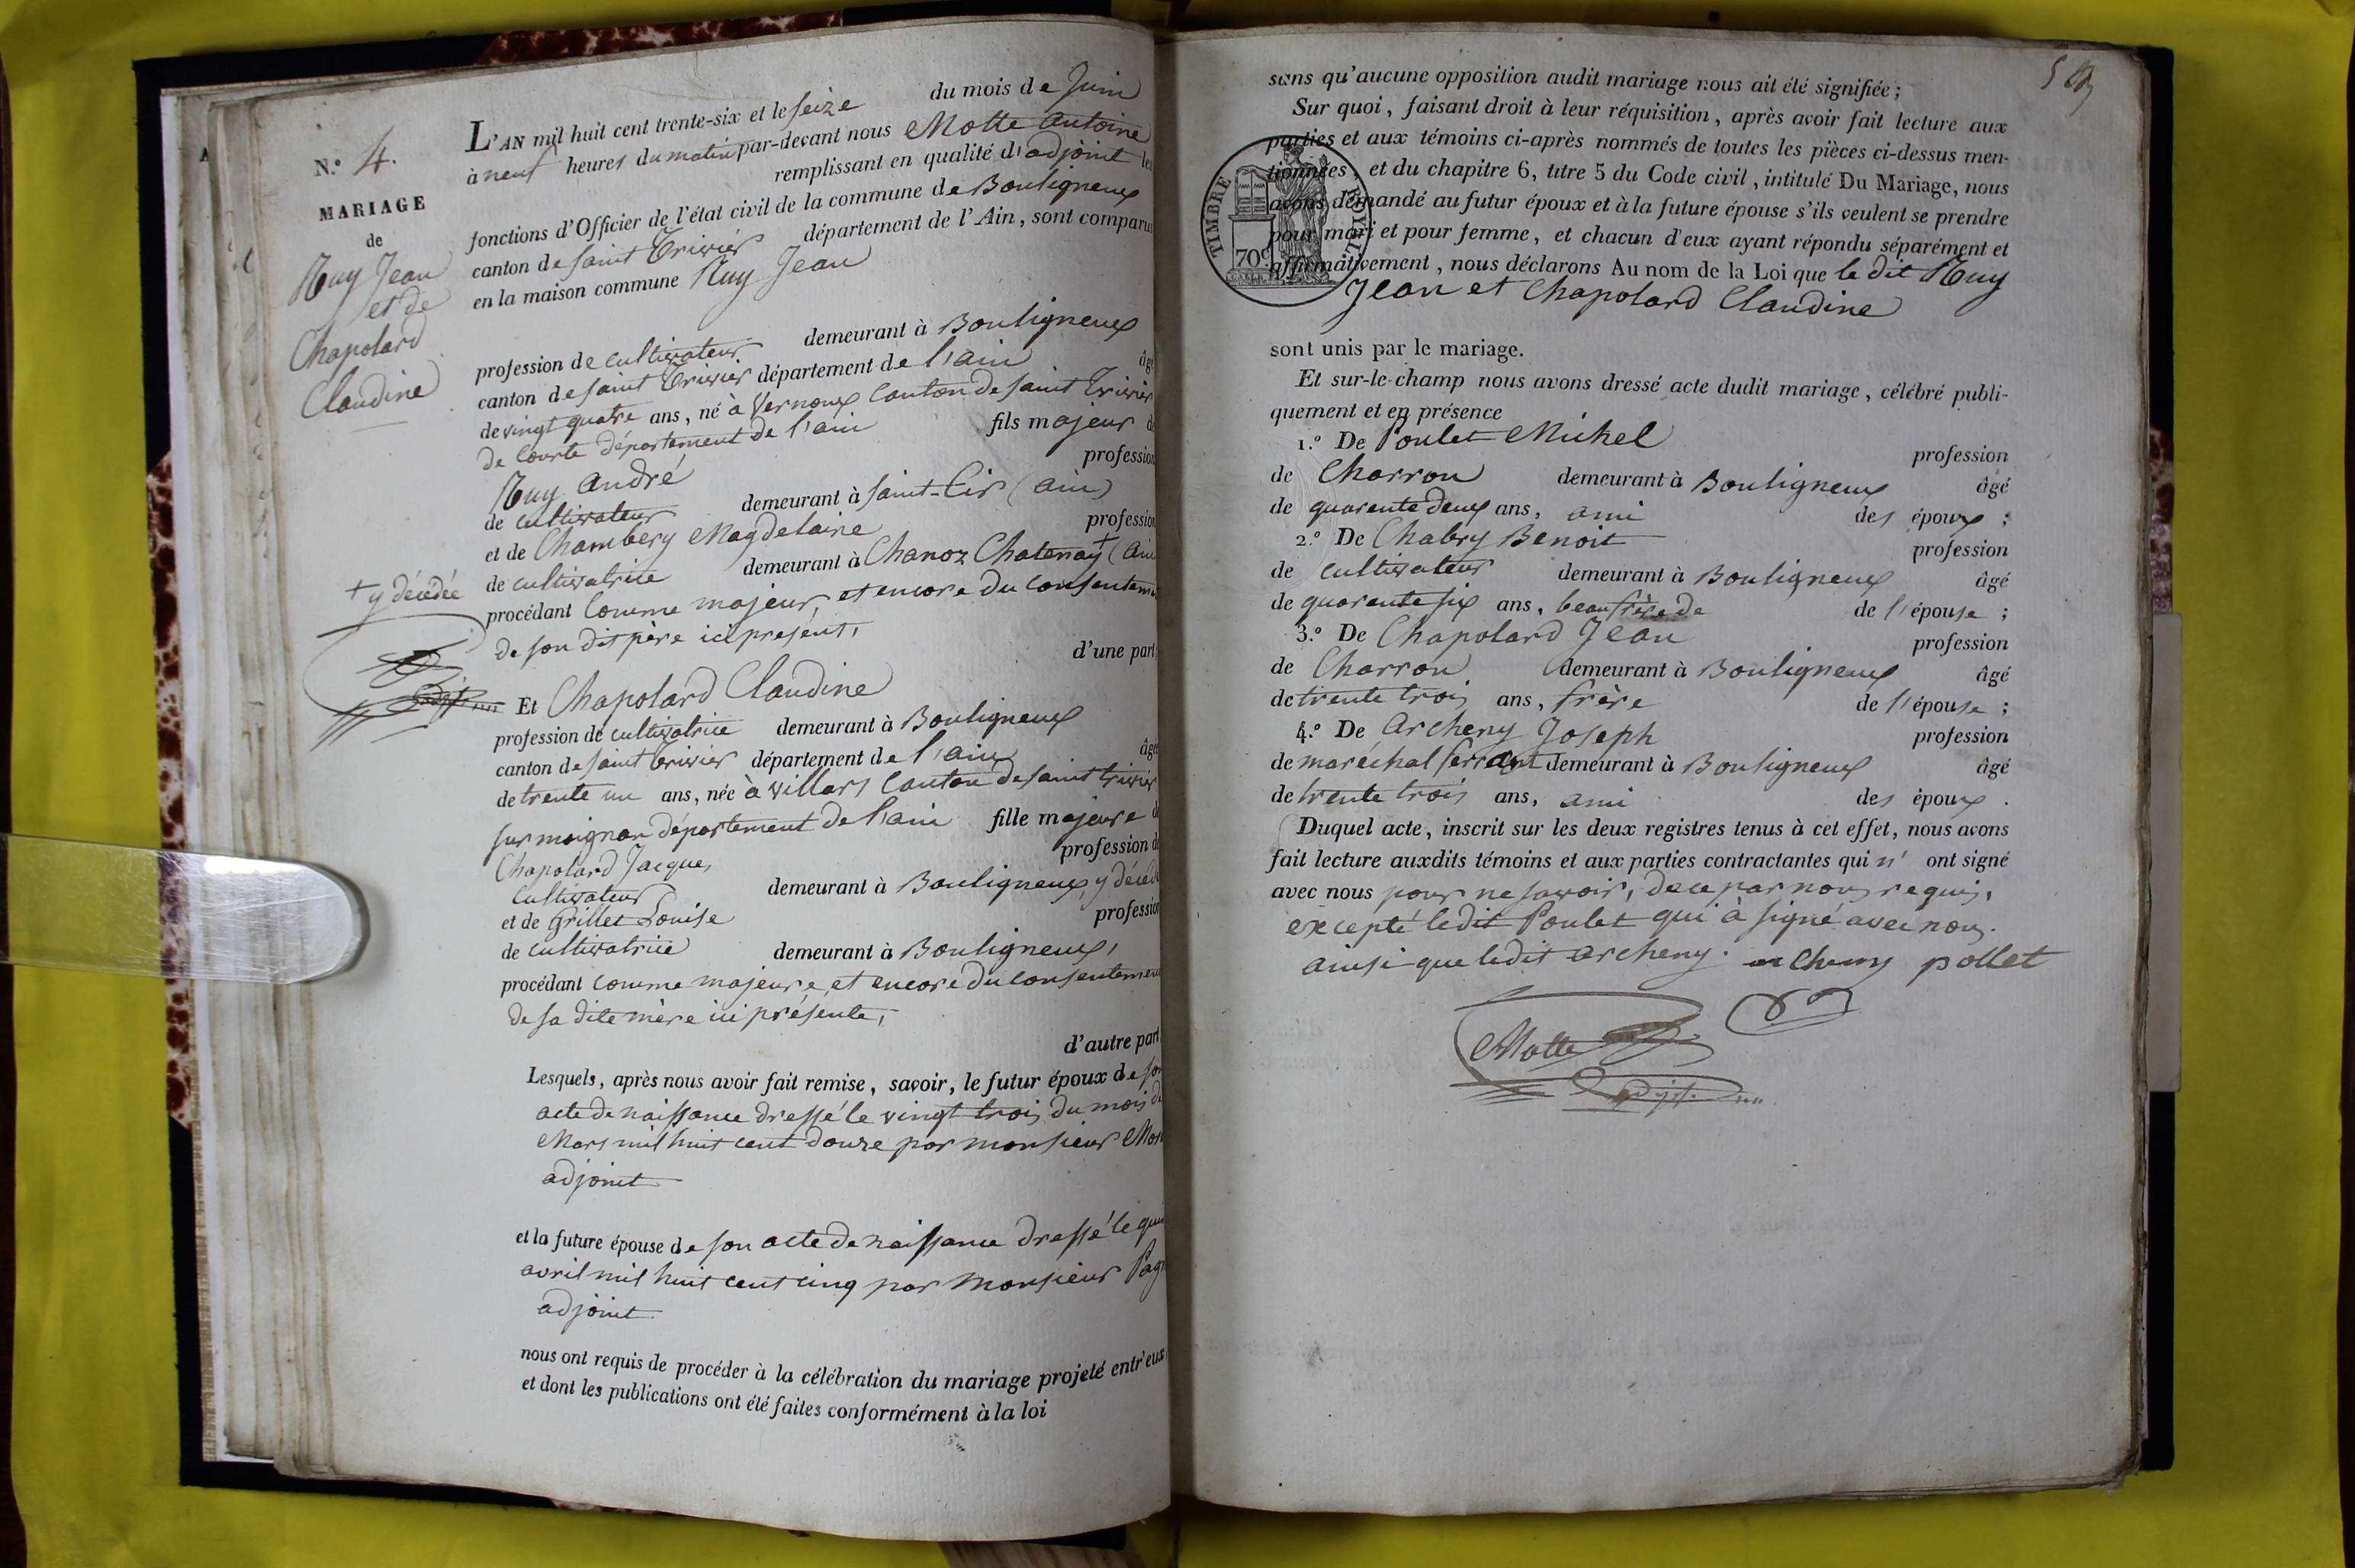 N.º 4.
MARIAGE
de
Ruy Jean
et de
Chapolard
Claudine
+ y décédée
L'AN mil huit cent trente-six et le seize du mois de Juin
à neuf heures du matin par-devant nous Motte Antoine
remplissant en qualité d'adjoint les
fonctions d'Officier de l'état civil de la commune de Bouligneux
canton de saint Trivier département de l'Ain, sont comparu
en la maison commune Ruy Jean
profession de cultivateur demeurant à Bouligneux
canton de saint Trivier département de l'ain âgé
de vingt quatre ans, né à Vernoux Canton de saint Trivier
de Courte département de l'ain fils majeur de
Ruy André profession
de cultivateur demeurant à saint-Cir (ain)
et de Chambery Magdelaine profession
de cultivatrice demeurant à Chanoz Chatenay + (ain
procédant Comme majeur, et encore du Consenteme
de son dit père ici présent,
d'une part
Et Chapolard Claudine
profession de cultivatrice demeurant à Bouligneux
canton de saint Trivier département de l'ain âgé
de trente un ans, née à Villars Canton de saint trivier
sur moignan département de l'ain fille majeure de
Chapolard Jacques, profession de
Cultivateur demeurant à Bouligneux, y décédé
et de Grillet Louise profession
de cultivatrice demeurant à Bouligneux,
procédant comme majeure, et encore du consentement
de sa dite mère ici présente,
d'autre part
Lesquels, après nous avoir fait remise, savoir, le futur époux de son
acte de naissance dressé le vingt trois du mois de
Mars mil huit cent douze par monsieur
adjoint
et la future épouse de son acte de naissance dressé le
avril mil huit cent cinq par Monsieur
adjoint
nous ont requis de procéder à la célébration du mariage projeté entr'eux
et dont les publications ont été faites conformément à la loi
sans qu'aucune opposition audit mariage nous ait été signifiée ;
Sur quoi, faisant droit à leur réquisition, après avoir fait lecture aux
parties et aux témoins ci-après nommés de toutes les pièces ci-dessus men-
tionnées, et du chapitre 6, titre 5 du Code civil, intitulé Du Mariage, nous
avons demandé au futur époux et à la future épouse s'ils veulent se prendre
pour mari et pour femme, et chacun d'eux ayant répondu séparément et
affirmativement, nous déclarons Au nom de la Loi que le dit Ruy
Jean et Chapolard Claudine
TIMBRE ROYAL
70c
sont unis par le mariage.
Et sur-le-champ nous avons dressé acte dudit mariage, célébré publi-
quement et en présence
1.º De Poulet Michel profession
de Charron demeurant à Bouligneux âgé
de quarante deux ans, ami des époux ;
2.º De Chabry Benoit profession
de cultivateur demeurant à Bouligneux âgé
de quarante six ans, beaufrère de de l'épouse ;
3.º De Chapolard Jean profession
de Charron demeurant à Bouligneux âgé
de trente trois ans, frère de l'épouse ;
4.º De Archeny Joseph profession
de maréchal ferrant demeurant à Bouligneux âgé
de trente trois ans, ami des époux .
Duquel acte, inscrit sur les deux registres tenus à cet effet, nous avons
fait lecture auxdits témoins et aux parties contractantes qui n' ont signé
avec nous pour ne savoir, de ce par nous requis,
excepté ledit Poulet qui à signé avec nous.
ainsi que ledit Archeny. archeny pollet
Motte
adjt.